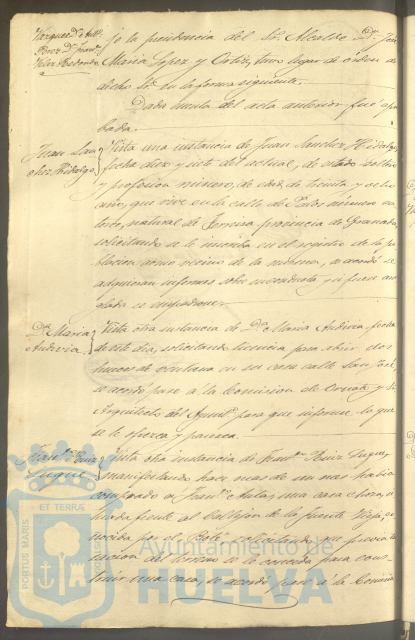 Vazquez D. Ant.º
Perez D. Fran.co
Velez Redondo
jo la presidencia del Sr. Alcalde D. José
Maria Lopez y Ortiz, tuvo lugar la ordin.a de
dicho D. en la forma siguiente.
Dada cuenta del acta anterior fue apro
bada.
Juan San
chez Hidalgo
Vista una instancia de Juan Sanchez Hidalgo
fecha diez y siete del actual, de estado soltero
y profesion minero, de edad de treinta y ocho
años, que vive en la calle de Palos número ca
torce, natural de provincia de Granada,
solicitando se le inscriba en el registro de la po
blacion como vecino de la misma, se acordó se
adquieran informes sobre su conducta y si fuere arre
glada se empadrone.
D.a Maria
Andivia
Vista otra instancia de D.a Maria Andivia fecha
de este dia, solicitando licencia para abrir dos
huecos de ventana en su casa calle San José,
se acordó pase á la Comision de Ornato y Sr.
Arquitecto del Ayunt.º para que informe lo que
se le ofrezca y parezca.
Fran.co Ruiz
Duque
Vista otra instancia de Fran.co Ruiz Duque,
manifestando hace mas de un mes habia
comprado á Juan de Aulas, una casa choza, si
tuada frente al Callejon de la Fuente Vieja, co
nocida por el solicitando que previa
cesion del terreno se le conceda para cons
truir una casa, se acordó pase á la Comision
PORTUS MARIS
ET TERRÆ
CUSTODIA
Ayuntamiento de
HUELVA